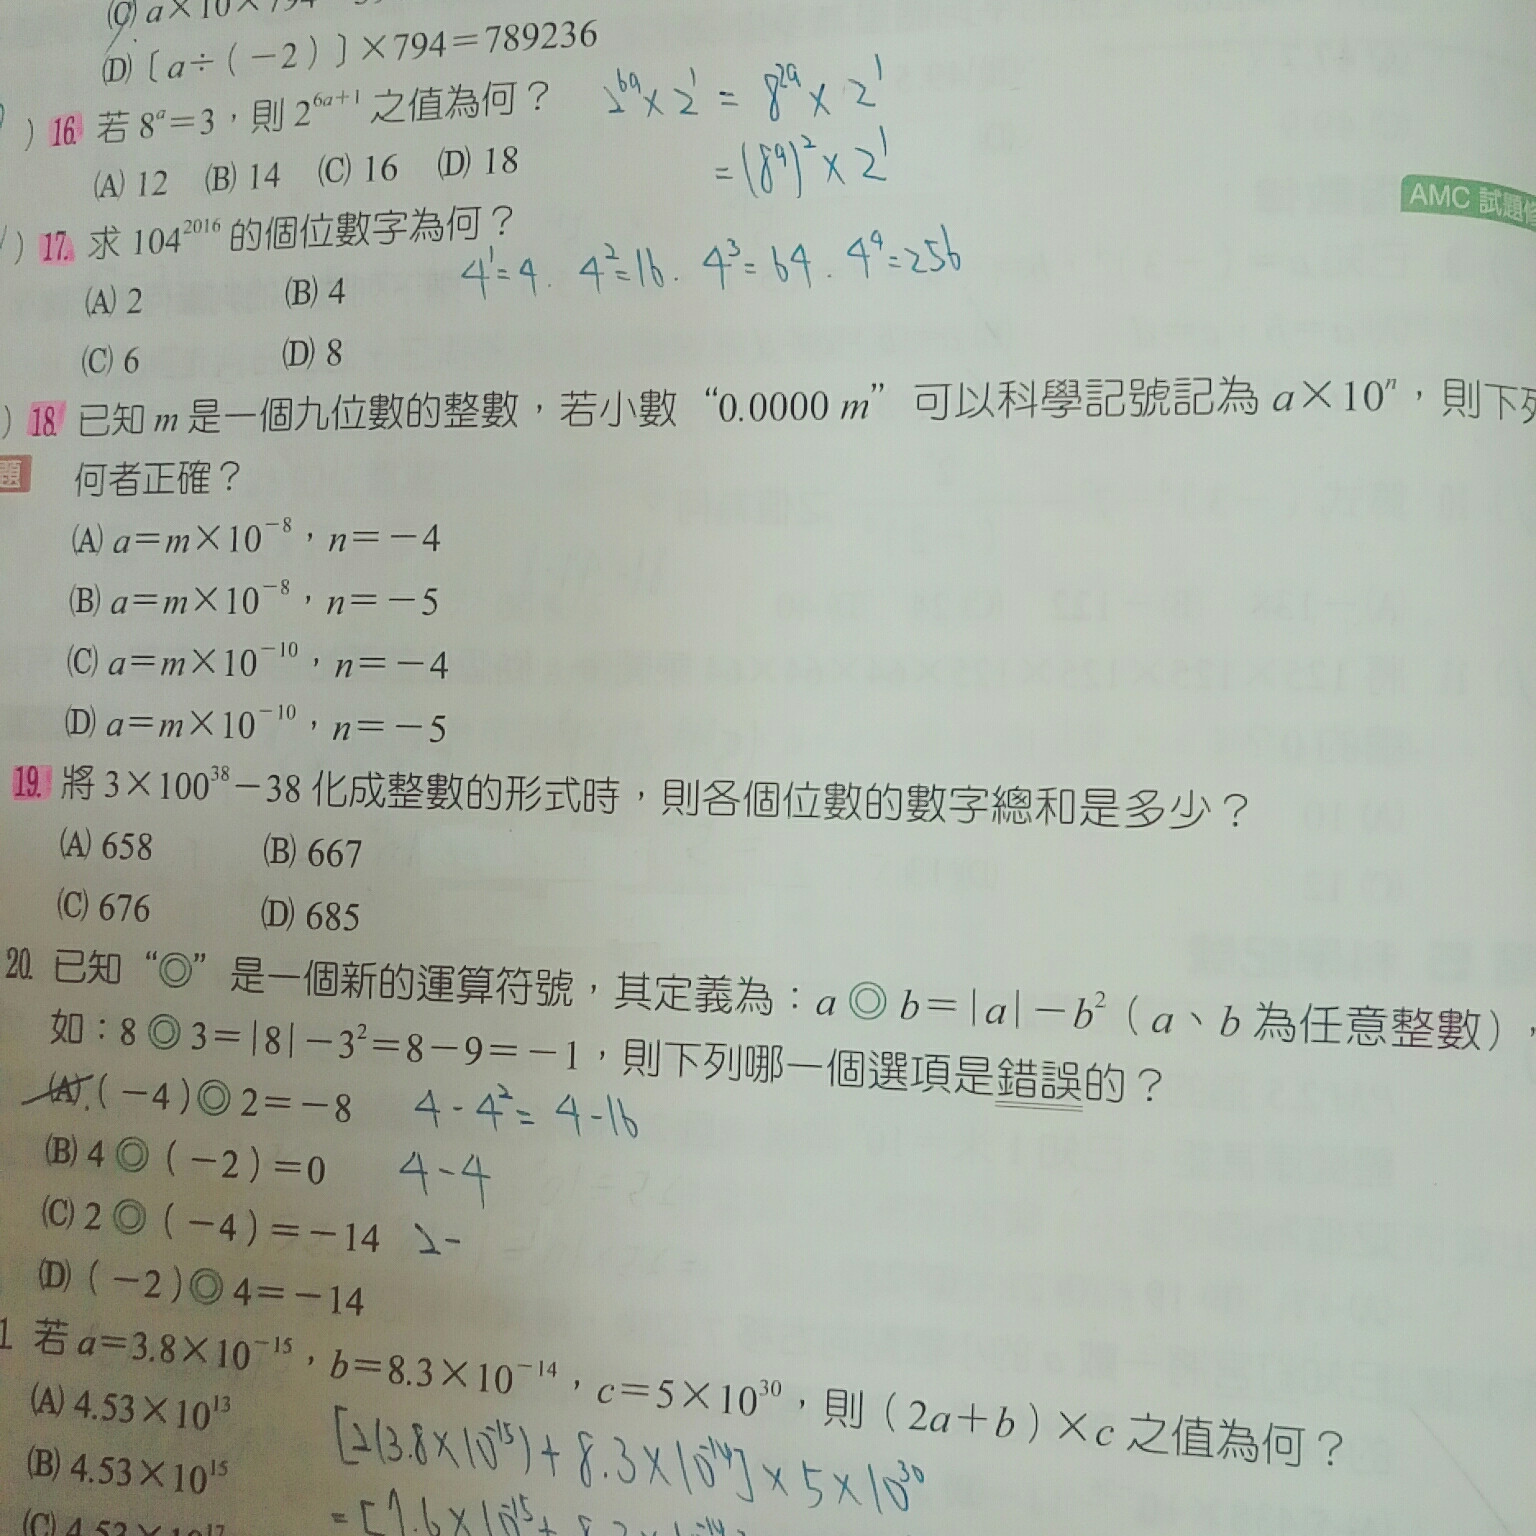 (C) a×10×794
(D)〔a÷(-2)〕×794=789236
)16. 若 8ᵃ=3，則 2⁶ᵃ⁺¹ 之值為何？ 2⁶ᵃ×2¹ = 8²ᵃ×2¹
(A) 12 (B) 14 (C) 16 (D) 18 =(8ᵃ)²×2¹
AMC 試題
)17. 求 104²⁰¹⁶ 的個位數字為何？
4¹=4. 4²=16. 4³=64. 4⁴=256
(A) 2 (B) 4
(C) 6 (D) 8
)18. 已知 m 是一個九位數的整數，若小數 “0.0000 m” 可以科學記號記為 a×10ⁿ，則下列
題 何者正確？
(A) a=m×10⁻⁸，n=-4
(B) a=m×10⁻⁸，n=-5
(C) a=m×10⁻¹⁰，n=-4
(D) a=m×10⁻¹⁰，n=-5
19. 將 3×100³⁸-38 化成整數的形式時，則各個位數的數字總和是多少？
(A) 658 (B) 667
(C) 676 (D) 685
20. 已知 “◎” 是一個新的運算符號，其定義為：a ◎ b=|a|-b²（a、b 為任意整數），
如：8 ◎ 3=|8|-3²=8-9=-1，則下列哪一個選項是錯誤的？
(A) (-4)◎2=-8 4-4²=4-16
(B) 4 ◎ (-2)=0 4-4
(C) 2 ◎ (-4)=-14 2-
(D) (-2)◎4=-14
1. 若 a=3.8×10⁻¹⁵，b=8.3×10⁻¹⁴，c=5×10³⁰，則（2a+b）×c 之值為何？
(A) 4.53×10¹³
[2(3.8×10⁻¹⁵)+8.3×10⁻¹⁴]×5×10³⁰
(B) 4.53×10¹⁵
=[7.6×10⁻¹⁵+
(C) 4.53×10¹⁷